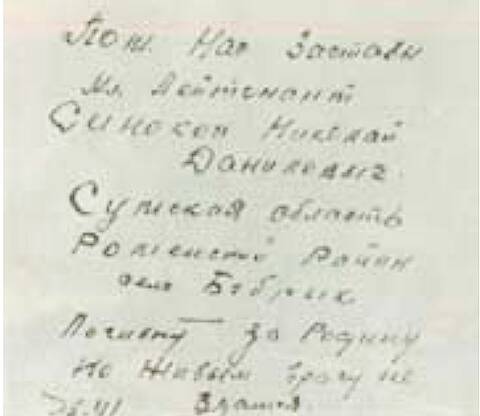 Пом. Нач Заставы
Мл. Лейтенант
Синокоп Николай
Данилович
Сумская область
Роменский Район
село Бобрик
Погибну за Родину
но Живым врагу не
Здамся.